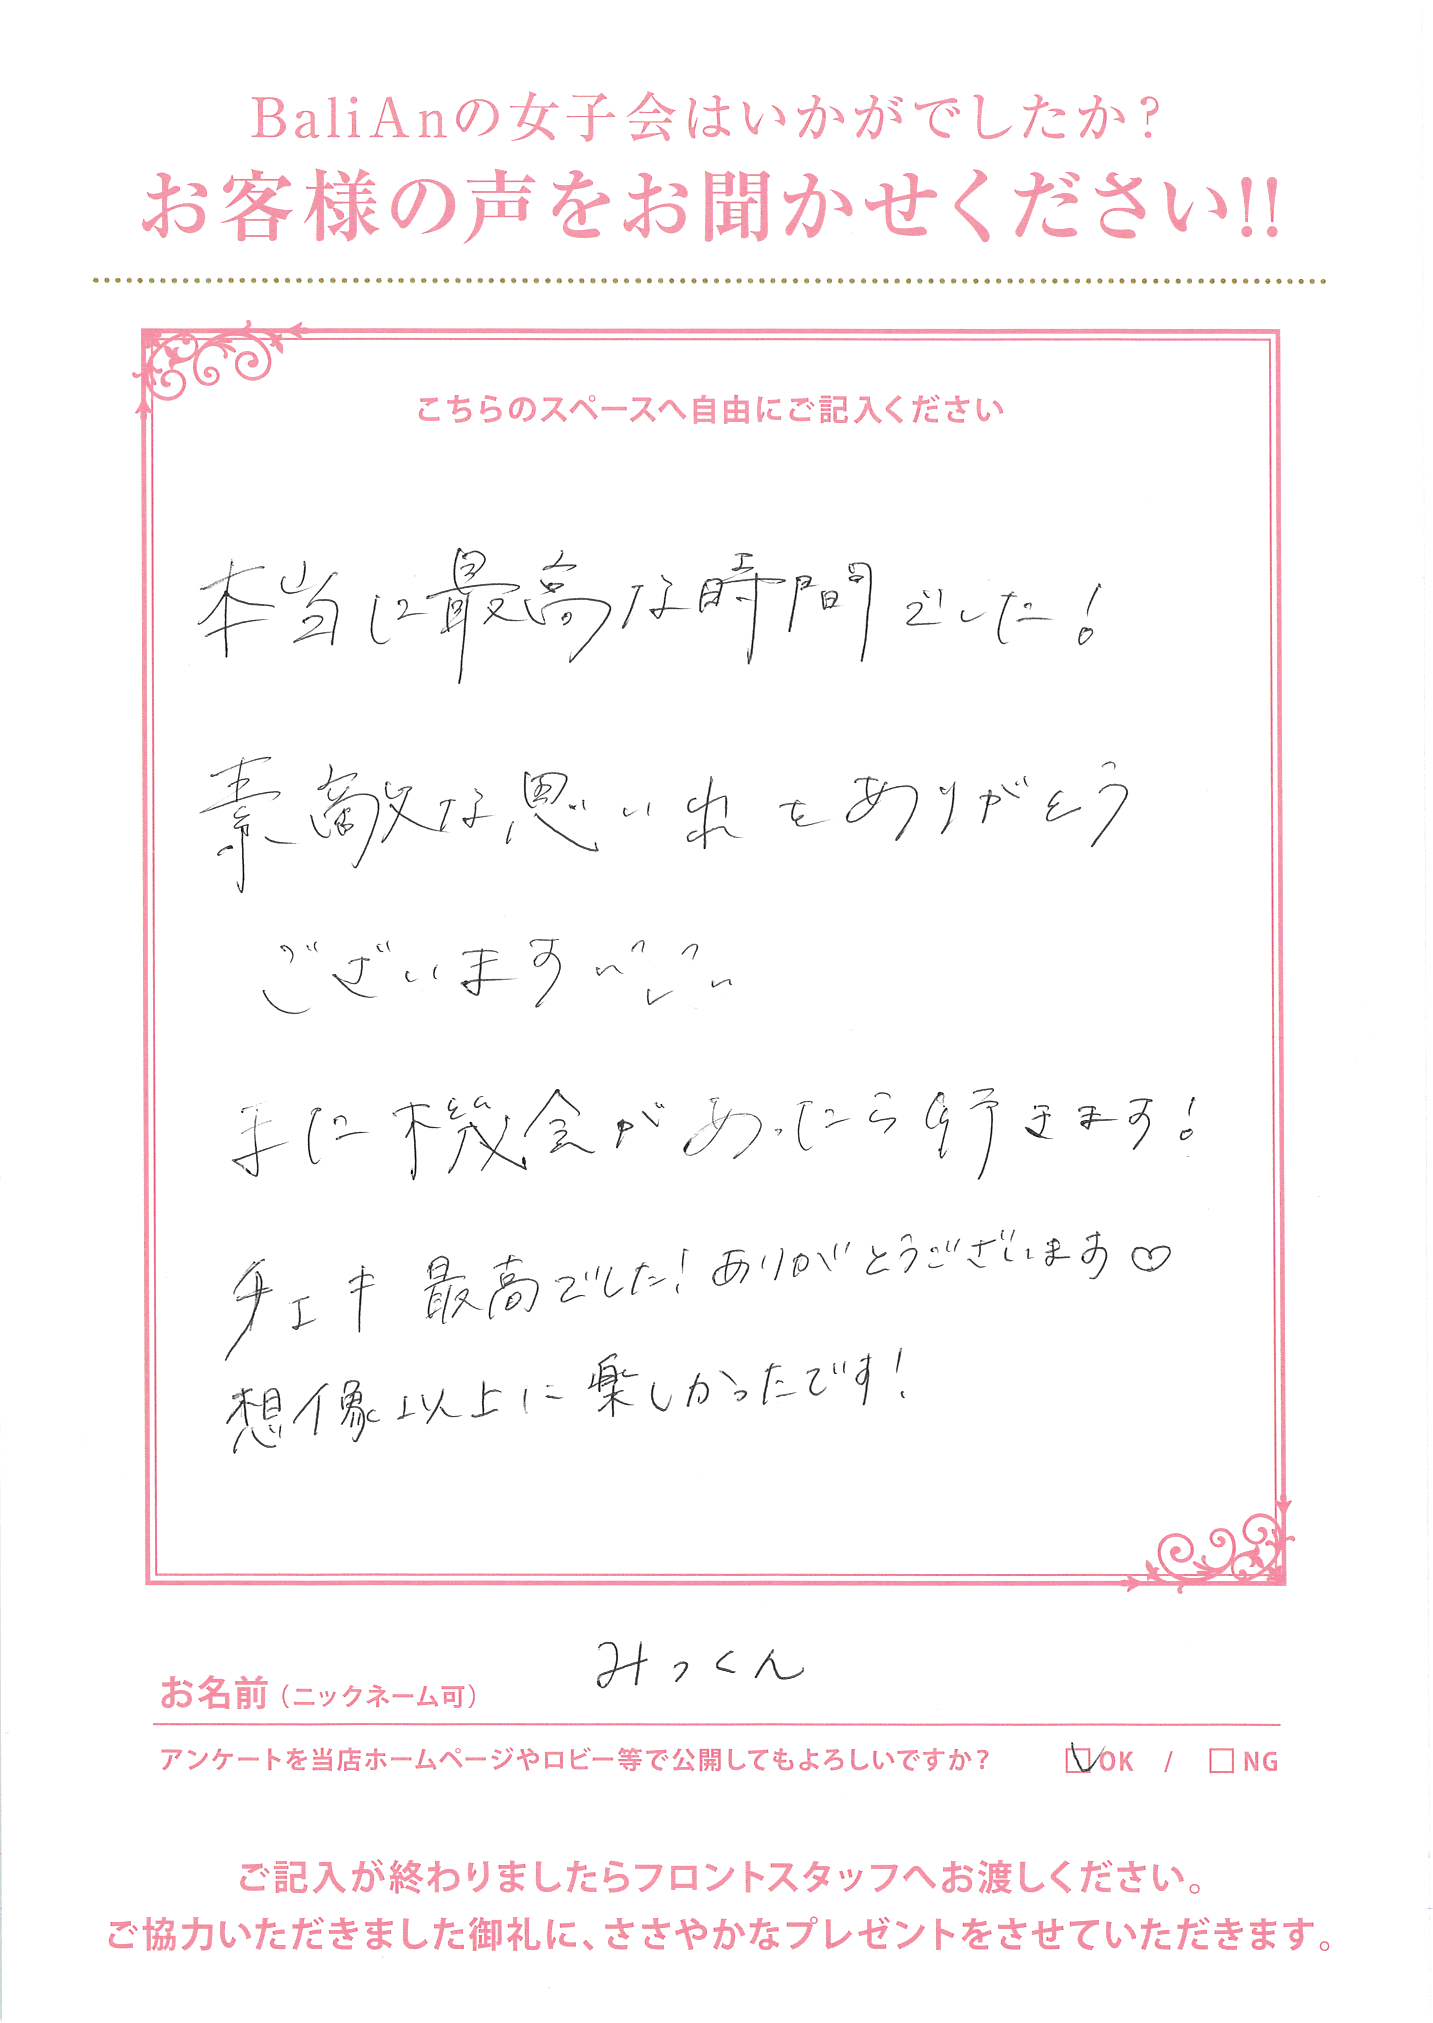 BaliAnの女子会はいかがでしたか?
お客様の声をお聞かせください!!
こちらのスペースへ自由にご記入ください
本当に最高な時間でした!
素敵な思いれをありがとう
ございます
また機会があったら行きます!
チェキ最高でした!ありがとうございます♡
想像以上に楽しかったです!
みっくん
お名前(ニックネーム可)
アンケートを当店ホームページやロビー等で公開してもよろしいですか? ☑OK / □NG
ご記入が終わりましたらフロントスタッフへお渡しください。
ご協力いただきました御礼に、ささやかなプレゼントをさせていただきます。